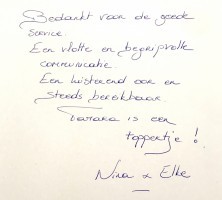 Bedankt voor de goede
service.
Een vlotte en begripvolle
communicatie.
Een luisterend oor en
steeds bereikbaar.
Tamara is een
toppertje!
Nina & Elke